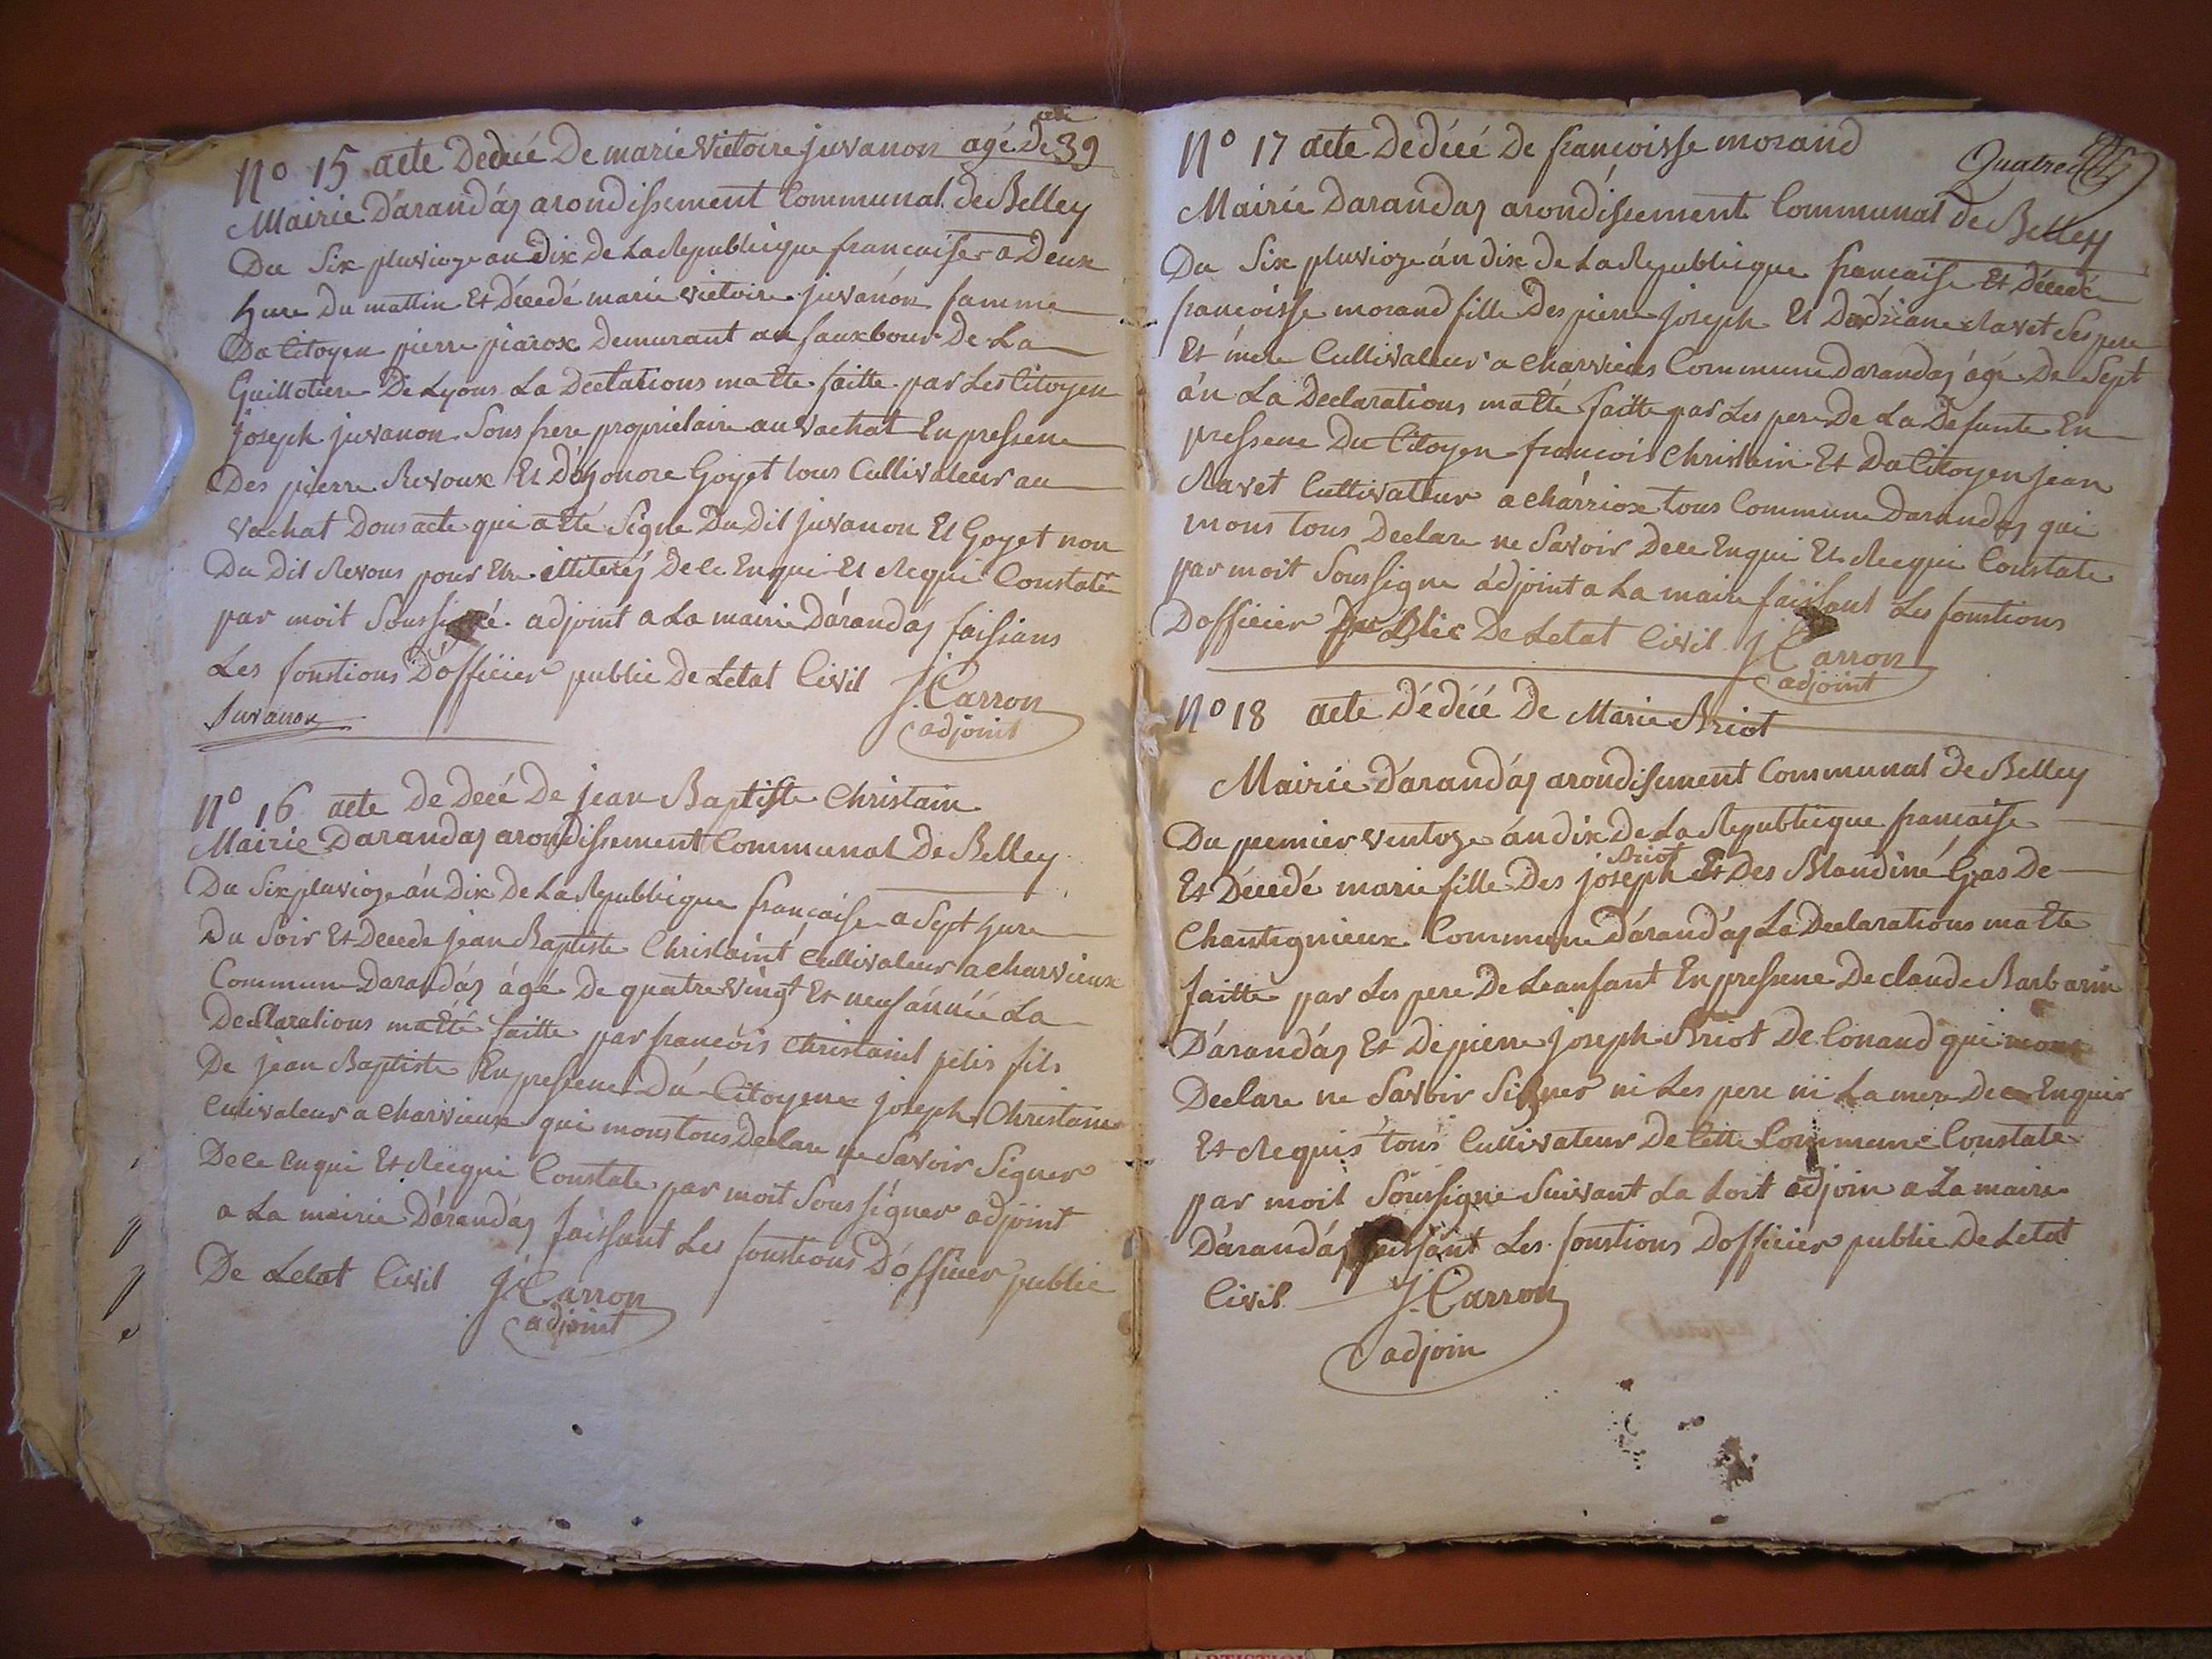 N° 15 acte Dedeié De marie victoire juvanon agé De 39 an
Mairie Darandas arondissement Communal de Belley
Du Six pluvioze an dix de La Republicque francaise a Deux
hure Du mattin Et décedé marie victoire juvanon famme
Du Citoyen pierre piarox demurant au fauxbour De La
Guillotiere De Lyons La Declarations ma ette faitte par Les Citoyen
joseph juvanon Sons frere proprietaire au vachat En pressene
Des pierre Revoux Et D'honore Goyet tous Cultivateur au
vachat Dons acte qui a Eté Signe Du Dit juvanon Et Goyet non
Du Dit Revous pour Etre illiterés De ce Enqui Et Reequi Constate
par moit Soussigné adjoint a La mairie Darandas faisians
Les fonstions D'officier public De Letat Civil J. Carron
adjoint
Juvanon
N° 16 acte De Decé De jean Baptiste Christain
Mairie Darandas arondissement Communal De Belley
Du Six pluvioze án Dix de La Republicque francaise a Sept hure
Du Soir Et Decede jean Baptiste Christaint Cultivateur a charvieux
Commun Darandas ágé De quatre vingt Et neuf ánnéé La
Declarations ma Eté faitte par francois Christaint petis fils
De jean Baptiste En pressene Du Citoyene joseph Christaine
Cutivateur a Charvieux qui mons tous Declare ne Savoir Signer
De ce Enqui Et Reequi Constate par moit Sous signer adjoint
a La mairie Dárandas faissant Les fonstions D'officier public
De Letat Civil J. Carron
adjoint
N° 17 acte De décé De francoisse morand
Quatre
Mairie Darandas arondissement Communal de Belley
Du Six pluvioze án dix De La Republicque francaise Et Décedé
francoisse morand fille Des pierre joseph Et Dadriane Ravet Ses pere
Et mere Cultivateur a charvieus Commune Darandas ágé De Sept
án La Declarations ma Eté faitte par Les pere De La Defunte En
pressene Du Citoyen francois Christain Et Du Citoyen jean
Ravet Cultivateur a chárriox tous Commune Darandas qui
mons tous Declare ne Savoir De ce Enqui Et Reequi Constate
par moit Soussigne ádjoint a La maire faissant Les fonstions
Dofficier Public De Letat Civil J. Carron
adjoint
N° 18 acte Dé déié De Marie Briot
Mairie D'arandás arondisement Communal de Belley
Du premier ventoze án dix de La Republicque francaise
Briot
Et Décedé marie fille Des joseph Et Des Blandiné Gras De
Chantegnieux Commune Dárandás La Declarations ma Ete
faitte par Les pere De Leanfant En pressene De claude Barbarin
Dárandás Et De pierre joseph Briot De Conand qui mons
Declare ne Savoir Signer ni Les pere ni La mere De ce Enquir
Et Requis tous Cultivateur De Cette Commune Constate
par moit Soussigne Suivant La Loit adjoin a La maire
Dárandás faissant Les fonstions Dofficier public De Letat
Civil J. Carron
adjoin